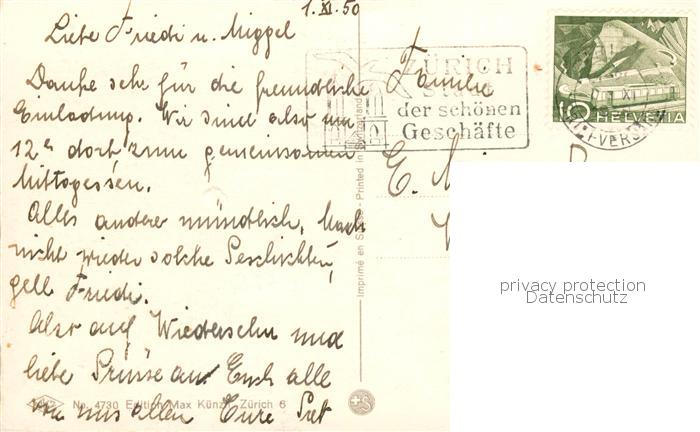 1. XI. 50
Liebe Friedi u. Miggel
Danke sehr für die freundliche
Einladung. Wir sind also um
12h dort zum gemeinsamen
Mittagessen.
Alles andere mündlich. Mach
nicht wieder solche Geschichten,
gell Friedi.
Also auf Wiedersehn und
liebe Grüsse an Euch alle
von uns allen Eure
No. 4730 Edition Max Künzli, Zürich 6
Imprimé en Suisse - Printed in Switzerland
ZÜRICH
der schönen
Geschäfte
5
HELVETIA
Familie
E.
privacy protection
Datenschutz